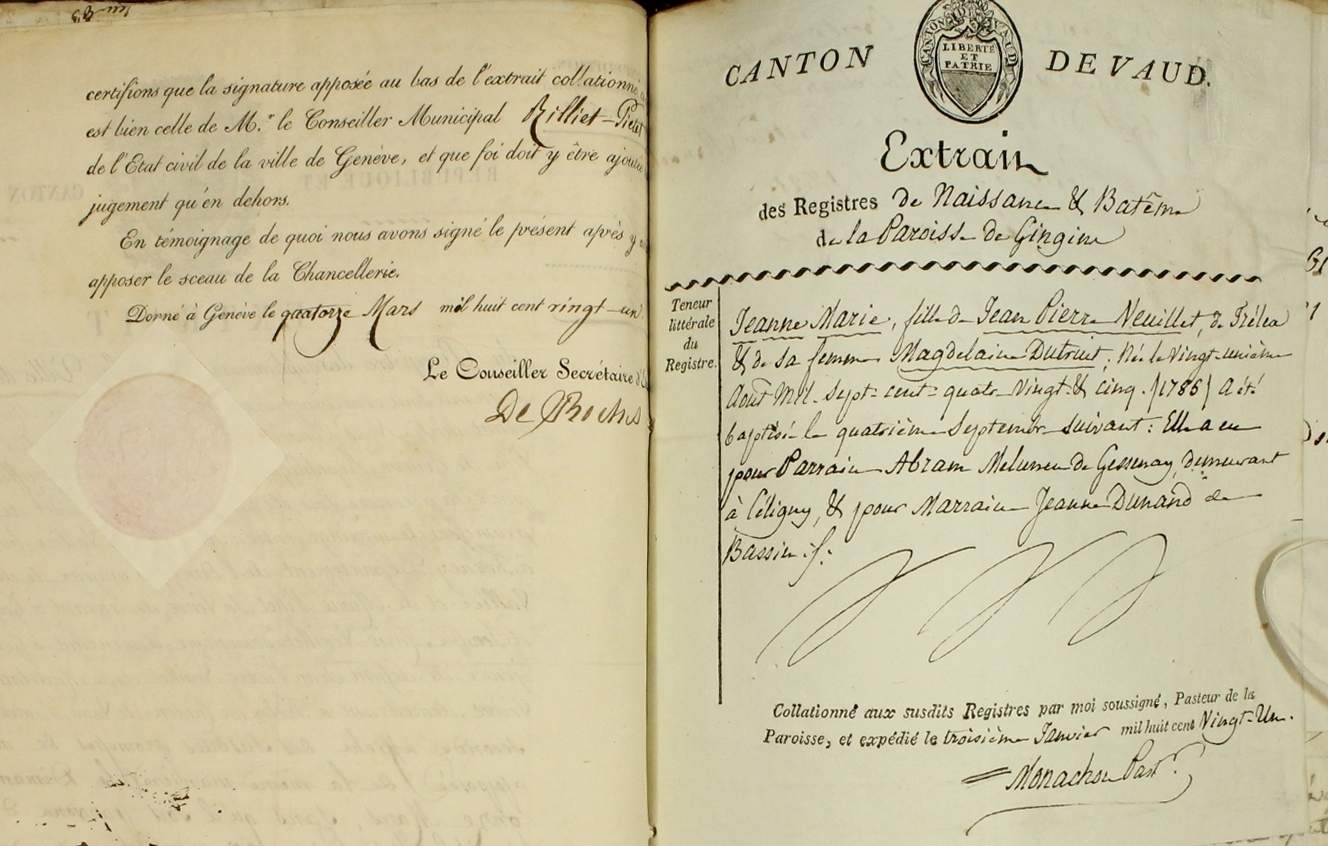 certifions que la signature apposée au bas de l'extrait collationné
est bien celle de M.r le Conseiller Municipal Rilliet-Pictet
de l'Etat civil de la ville de Genève, et que foi doit y être
jugement qu'en dehors.
En témoignage de quoi nous avons signé le présent après y
apposer le sceau de la Chancellerie.
Donné à Genève le quatorze Mars mil huit cent vingt-un
Le Conseiller Secrétaire
De Roches
CANTON DE VAUD.
CANTON VAUD
LIBERTÉ
ET
PATRIE
Extrait
des Registres de Naissance & Batême
de la Paroisse de Gingins
Teneur
littérale
du
Registre.
Jeanne Marie, fille de Jean Pierre Neuillet, de Trélex
& de sa femme Magdelaine Dutruit; Née le Vingt-unième
Août Mil-sept-cent-quatre-Vingt-& cinq. (1785) A été
baptisée le quatrième Septembre suivant: Elle a eu
pour Parrain Abram de Gessenay, demeurant
à Céligny, & pour Marraine Jeanne Dunand de
Bassins.
Collationné aux susdits Registres par moi soussigné, Pasteur de la
Paroisse, et expédié le troisième Janvier mil huit cent Vingt-Un.
Monachon Past.r